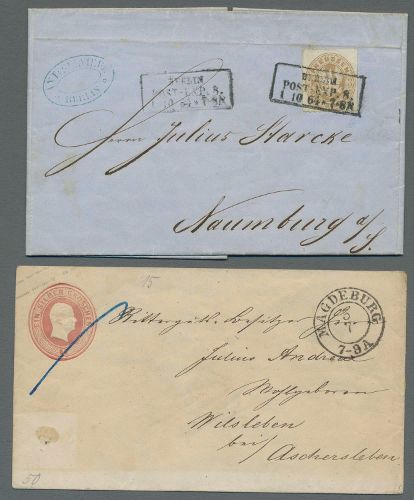 BERLIN
BERLIN
POST-EXP. 8.
1 10 64 * 7-8N
BERLIN
POST-EXP. 8.
1 10 64 * 7-8N
Herrn Julius Starcke
Naumburg a/S.
15
EIN SILBER GROSCHEN
MAGDEBURG
7-9A
Rittergutsbesitzer
Julius Andreae
Wohlgeboren
Wilsleben
bei
Aschersleben
50